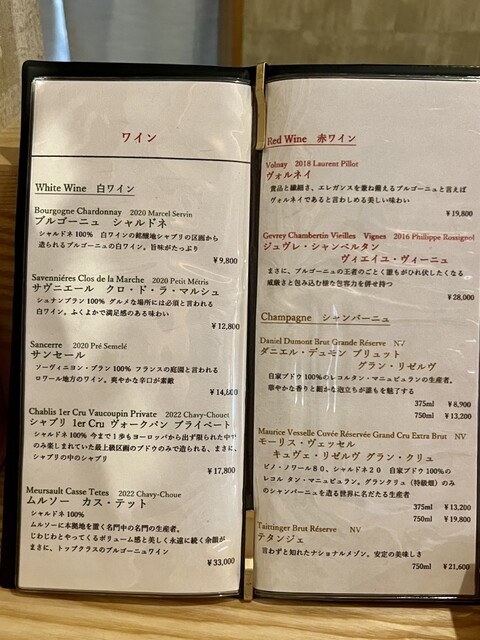 ワイン
White Wine 白ワイン
Bourgogne Chardonnay 2020 Marcel Servin
ブルゴーニュ シャルドネ
シャルドネ 100% 白ワインの銘醸地シャブリの区画から
造られるブルゴーニュの白ワイン。旨味がたっぷり
¥9,800
Savenniéres Clos de la Marche 2020 Petit Métris
サヴニエール クロ・ド・ラ・マルシュ
シュナンブラン 100% グルメな場所には必須と言われる
白ワイン。ふくよかで満足感のある味わい
¥12,800
Sancerre 2020 Pré Semelé
サンセール
ソーヴィニヨン・ブラン 100% フランスの庭園と言われる
ロワール地方のワイン。爽やかな辛口が素敵
¥14,800
Chablis 1er Cru Vaucoupin Private 2022 Chavy-Chouet
シャブリ 1er Cru ヴォークパン プライベート
シャルドネ 100% 今まで1歩もヨーロッパから出ず限られた中で
のみ楽しまれていた最上級区画のブドウのみで造られる、まさに、
シャブリの中のシャブリ
¥17,800
Meursault Casse Tetes 2022 Chavy-Choue
ムルソー カス・テット
シャルドネ 100%
ムルソーに本拠地を置く名門中の名門の生産者。
じわじわとやってくるボリューム感と美しく永遠に続く余韻が
まさに、トップクラスのブルゴーニュワイン
¥33,000
Red Wine 赤ワイン
Volnay 2018 Laurent Pillot
ヴォルネイ
貴品と繊細さ、エレガンスを兼ね備えるブルゴーニュと言えば
ヴォルネイであると言わしめる美しい味わい
¥19,800
Gevrey Chambertin Vieilles Vignes 2016 Philippe Rossignol
ジュヴレ・シャンベルタン
ヴィエイユ・ヴィーニュ
まさに、ブルゴーニュの王者のごとく誰もがひれ伏したくなる
威厳さと包み込む様な包容力を併せ持つ
¥28,000
Champagne シャンパーニュ
Daniel Dumont Brut Grande Réserve NV
ダニエル・デュモン ブリュット
グラン・リゼルヴ
自家ブドウ 100%のレコルタン・マニュピュランの生産者。
華やかな香りと細かな泡立ちが誰もを魅了する
375ml ¥8,900
750ml ¥13,200
Maurice Vesselle Cuvée Réservée Grand Cru Extra Brut NV
モーリス・ヴェッセル
キュヴェ・リゼルヴ グラン・クリュ
ピノ・ノワール80、シャルドネ20 自家ブドウ 100%の
レコル タン・マニュピュラン。グランクリュ(特級畑)のみ
のシャンパーニュを造る世界に名だたる生産者
375ml ¥13,200
750ml ¥19,800
Taittinger Brut Réserve NV
テタンジェ
言わずと知れたナショナルメゾン。安定の美味しさ
750ml ¥21,600